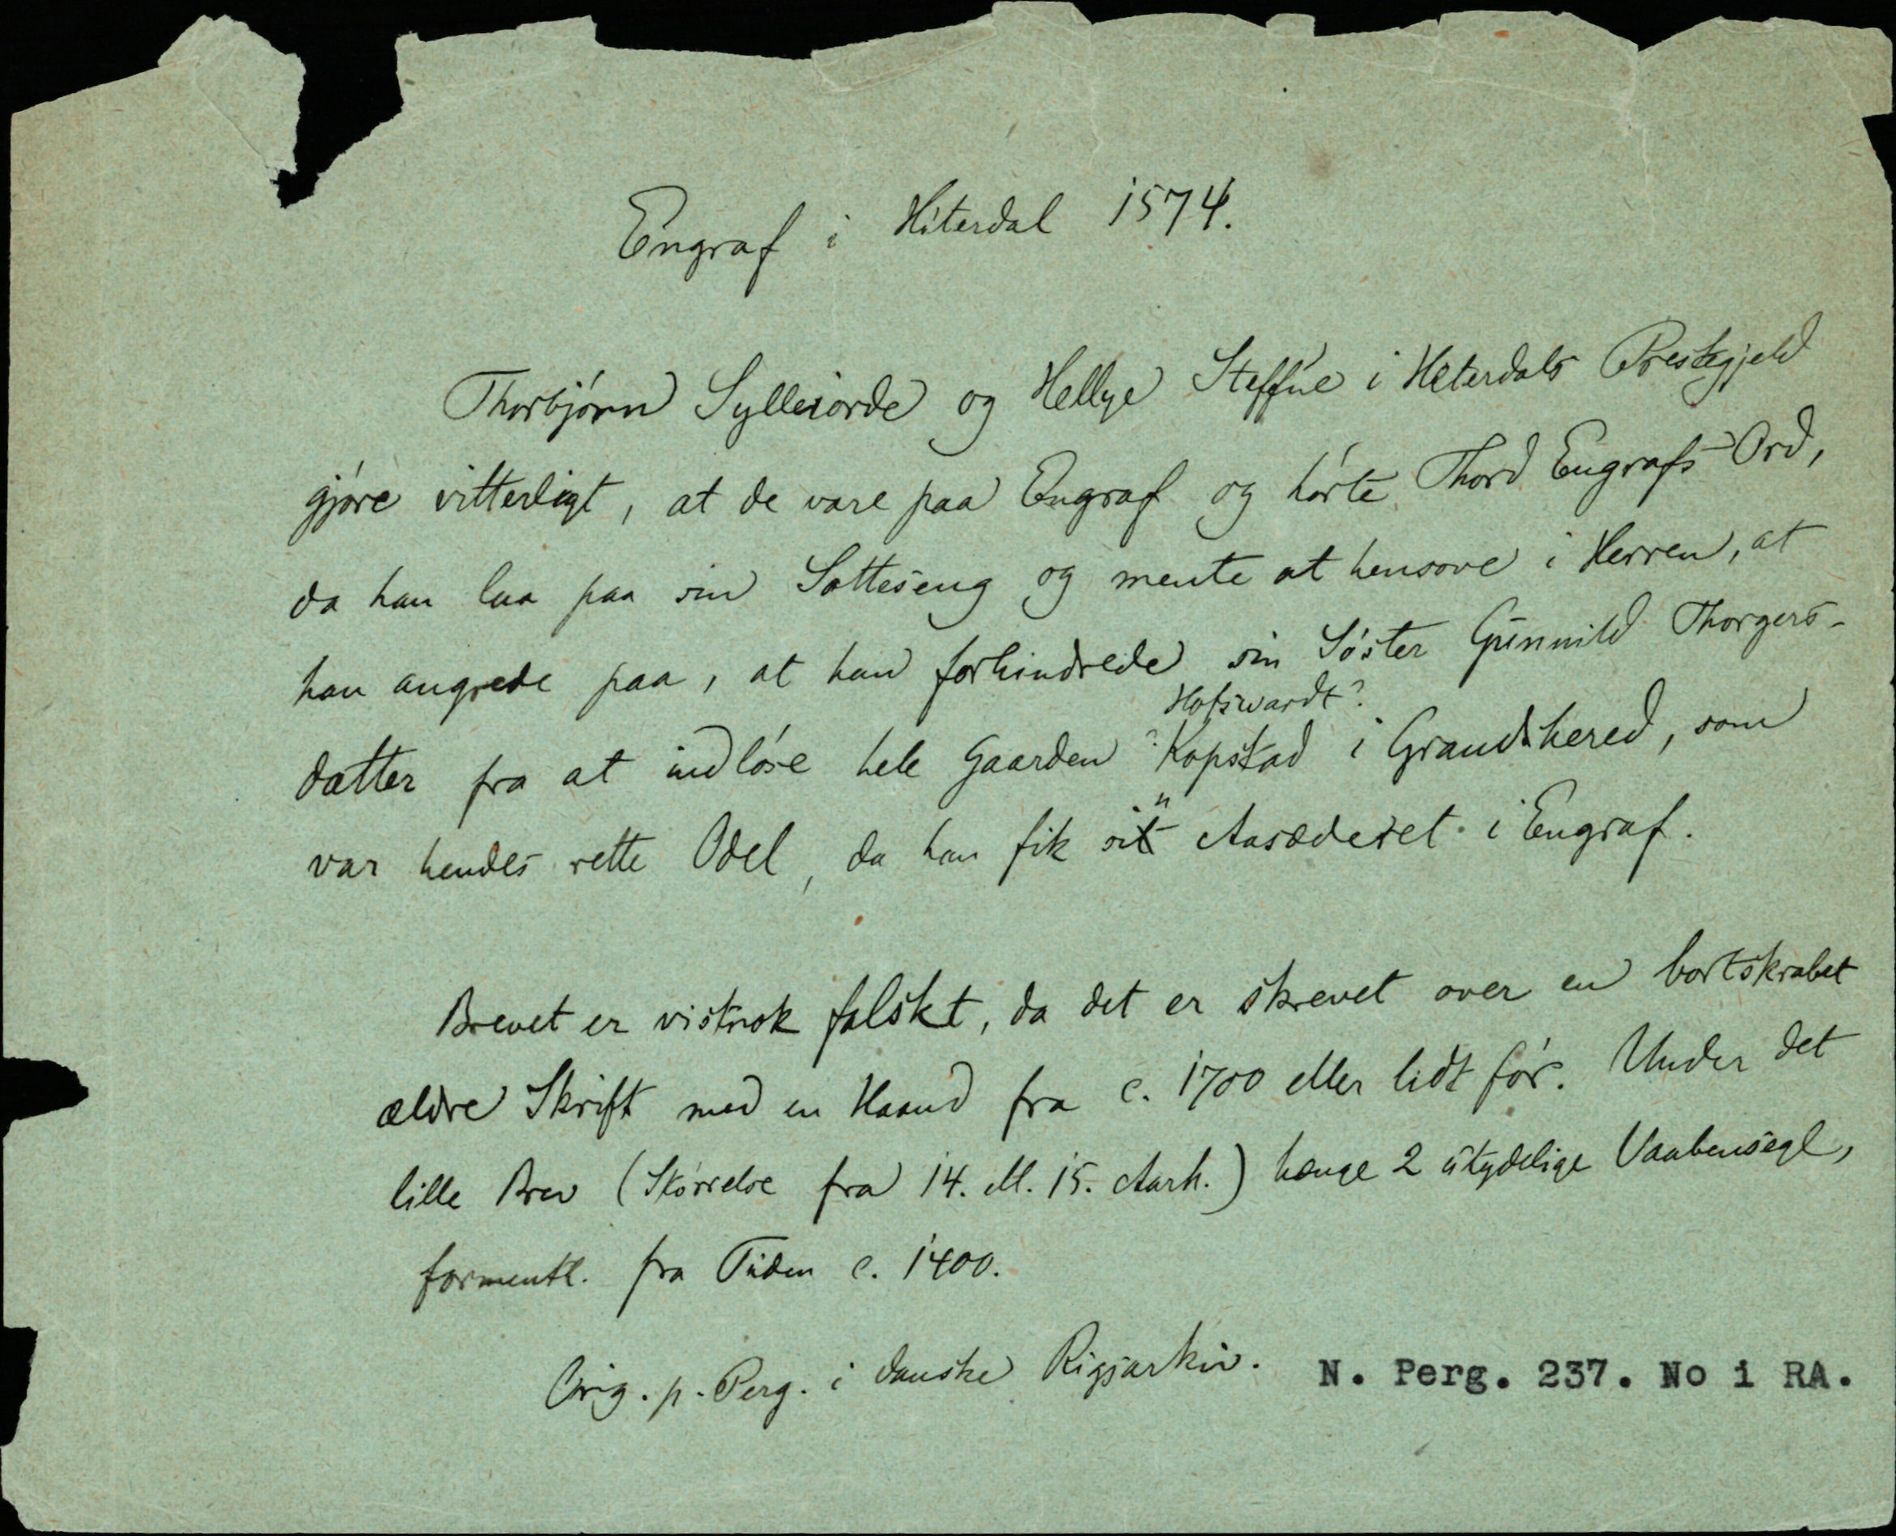 Engraf i Hiterdal 1574.
Thorbjörn Sylleiorde og Hellge Steffne i Heterdals Prestegjeld
gjöre vitterligt, at de vare paa Engraf og hörte Thord Engrafs Ord,
da han laa paa sin Sotteseng og mente at hensove i Herren, at
han angrede paa, at han forhindrede sin Söster Gunnild Thorgers-
Hofswardt?
datter fra at indlöse hele Gaarden ?Kopstad i Grandshered, som
var hendes rette Odel, da han fik sin Aasæderet i Engraf.
Brevet er vistnok falskt, da det er skrevet over en bortskrabet
ældre Skrift med en Haand fra c. 1700 eller lidt för. Under det
lille Brev (Störrelse fra 14. ell. 15. Aarh.) hænge 2 utydelige Vaabensegl,
formentl. fra Tiden c. 1400.
Orig. p. Perg. i danske Rigsarkiv. N. Perg. 237. No i RA.